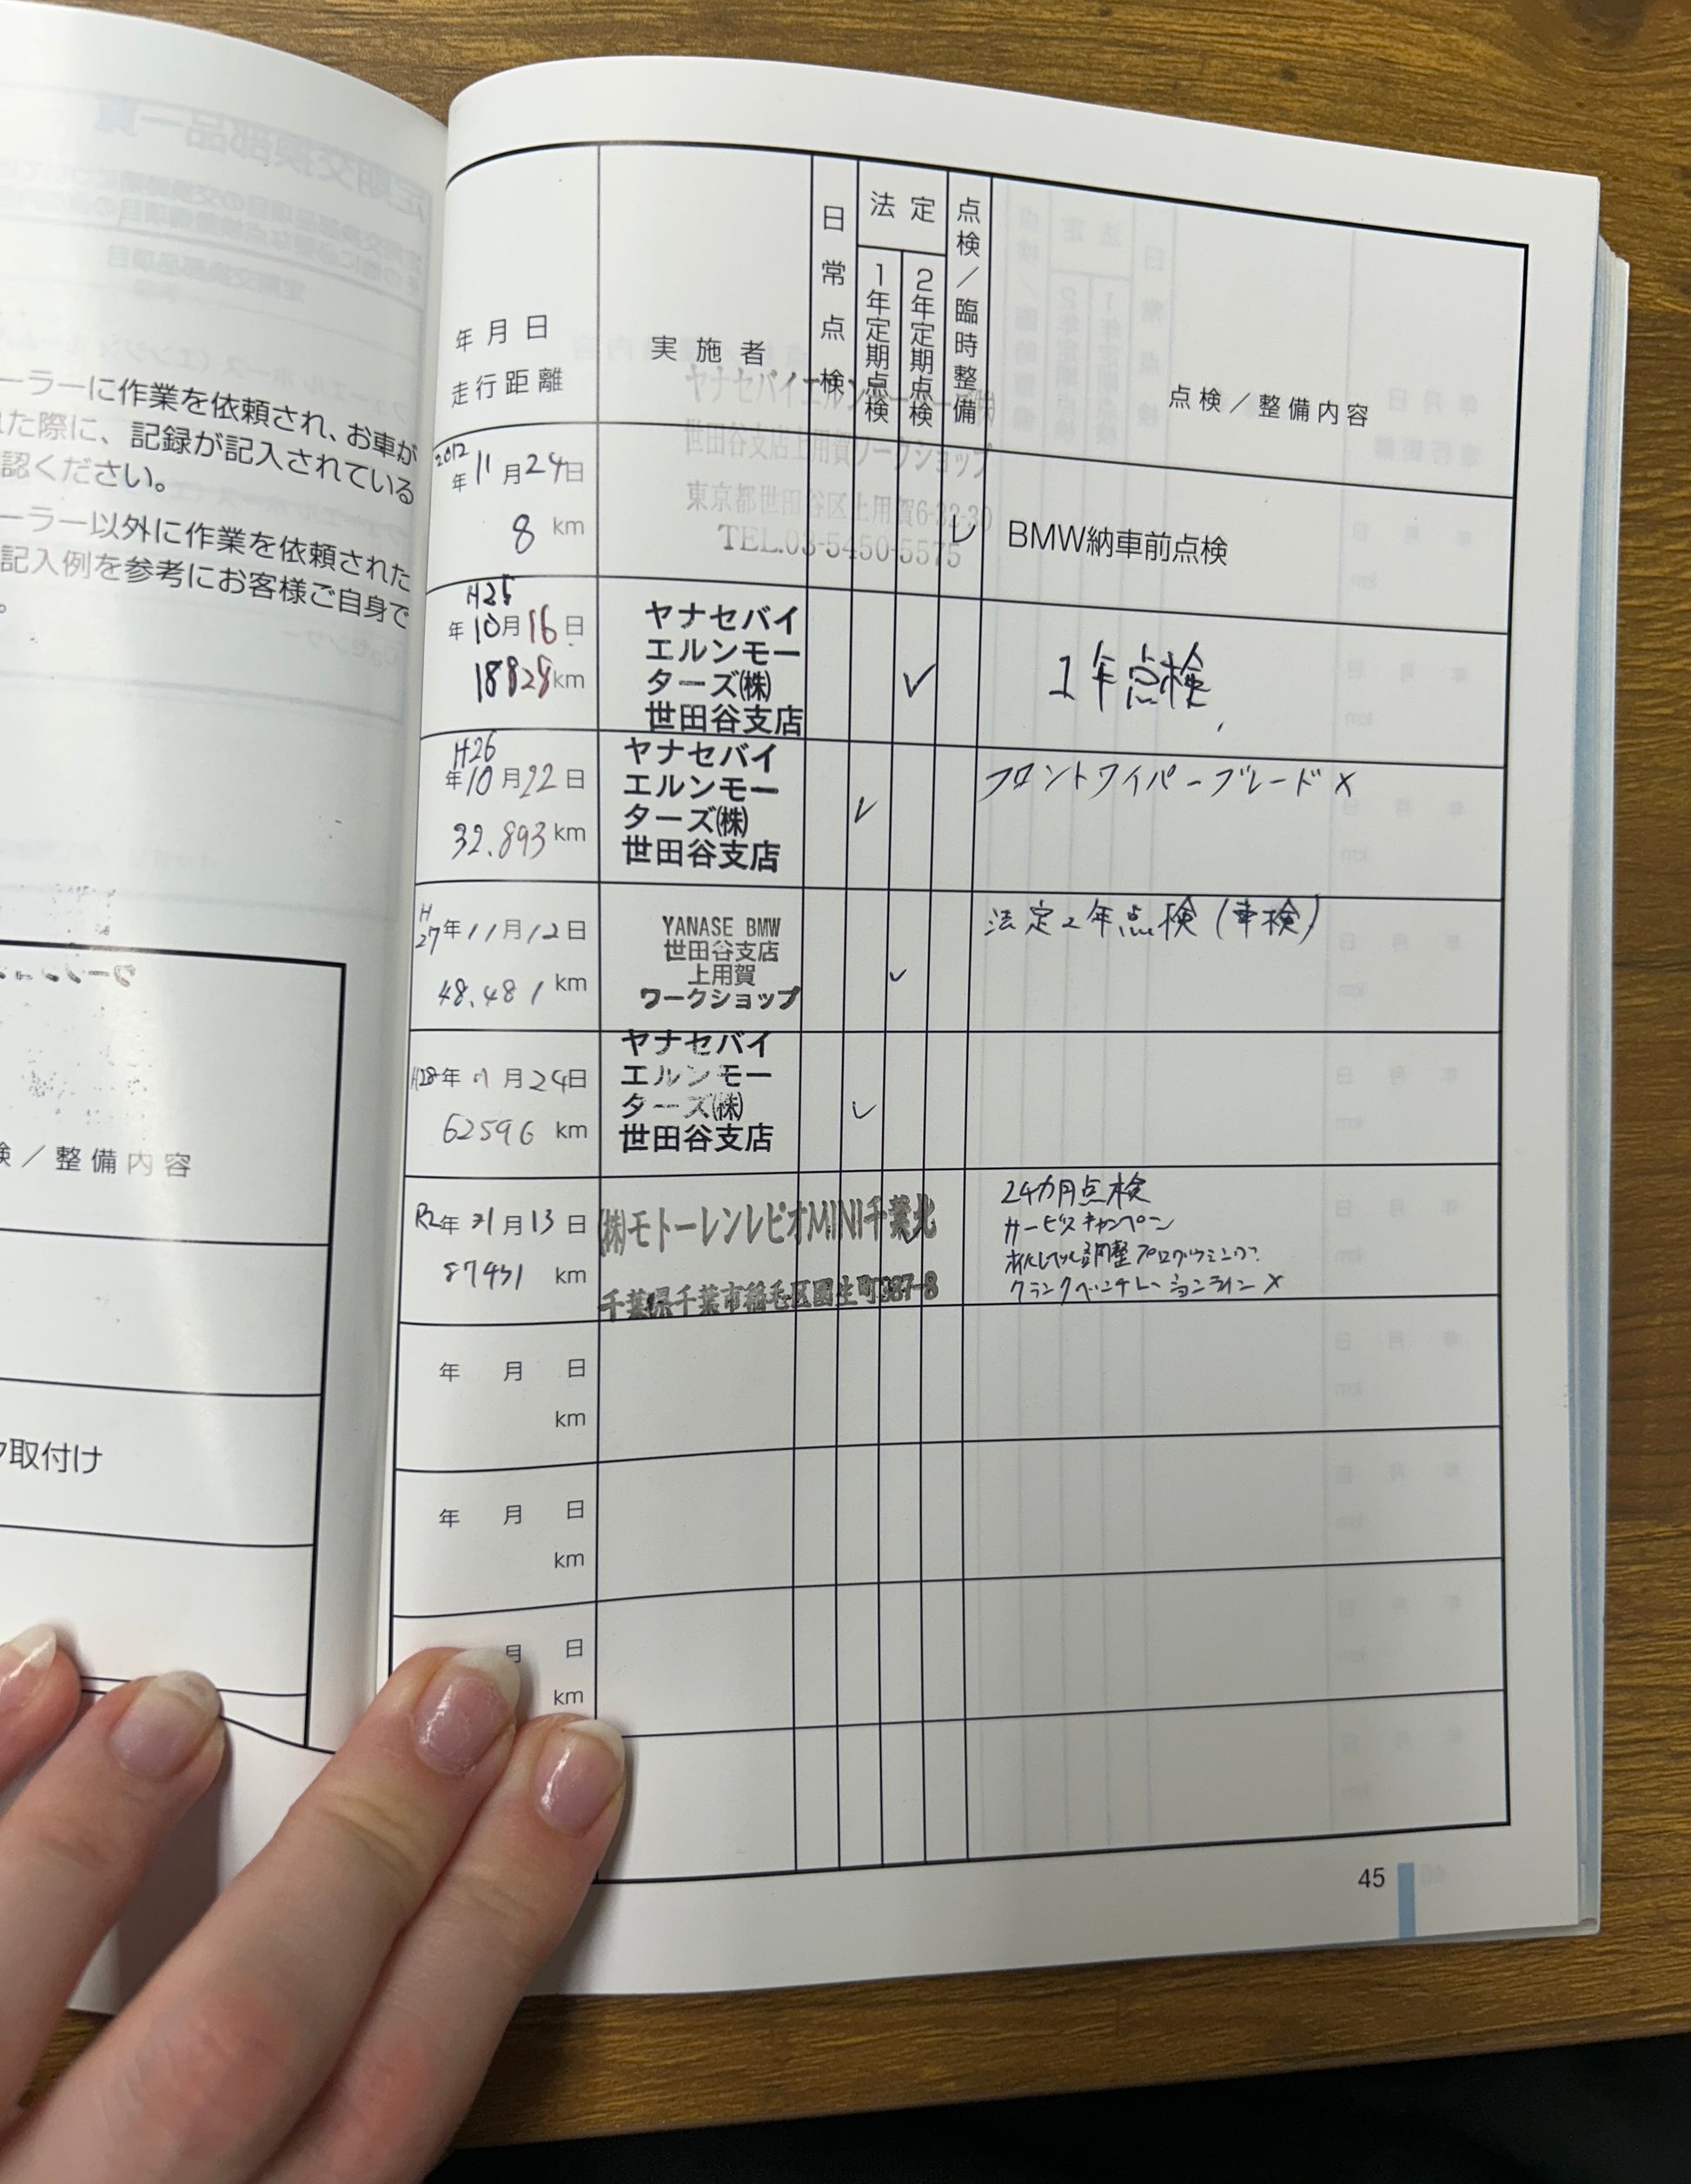 ーラーに作業を依頼され、お車が
た際に、記録が記入されている
認ください。
ーラー以外に作業を依頼された
記入例を参考にお客様ご自身で
。
／整備内容
取付け
年月日
走行距離
実施者
日常点検
法定
1年定期点検
2年定期点検
点検／臨時整備
点検／整備内容
2012年11月24日
8 km
世田谷支店上用賀ワークショップ
東京都世田谷区上用賀6-32-30
TEL.03-5450-5575
レ
BMW納車前点検
H25
年10月16日
18828km
ヤナセバイ
エルンモー
ターズ㈱
世田谷支店
✓
1年点検
H26
年10月22日
32.893km
ヤナセバイ
エルンモー
ターズ㈱
世田谷支店
✓
フロントワイパーブレード×
H27年11月12日
48.481km
YANASE BMW
世田谷支店
上用賀
ワークショップ
✓
法定2年点検(車検)
H28年 月24日
62596 km
ヤナセバイ
エルンモー
ターズ㈱
世田谷支店
✓
R2年 月13日
km
㈱モトーレンレピオMINI千葉北
千葉県千葉市稲毛区園生町387-8
24カ月点検
サービスキャンペーン
調整プログラミング
クランクベンチレーションライン×
年 月 日
km
年 月 日
km
月 日
km
45